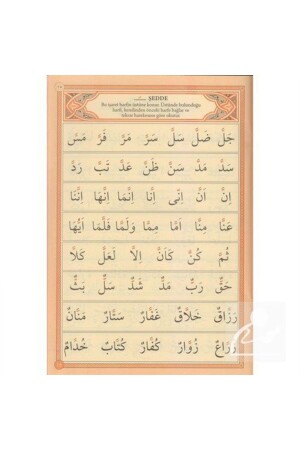 ŞEDDE
Bu işaret harfin üstüne konur. Üstünde bulunduğu
harfi, kendinden önceki harfe bağlar ve
iki defa
جَلَّ ضَلَّ سَلَّ سَرَّ مَرَّ فَرَّ مَسَّ
سَدَّ مَدَّ سَنَّ ظَنَّ عَدَّ تَبَّ رَدَّ
اِنَّ اَنَّ اِنّٖى اِنَّا اِنَّمَا اِنَّهَا اِنَّنَا
عَنَّا مِنَّا اَمَّا مِمَّا وَلَمَّا فَلَمَّا اَيُّهَا
ثُمَّ كُنَّ كَاَنَّ اِلَّا لَعَلَّ كَلَّا
حَقٌّ رَبٌّ مَدٌّ شَدٌّ سَلٌّ بَثٌّ
رَزَّاقٌ خَلَّاقٌ غَفَّارٌ سَتَّارٌ مَنَّانٌ
زُرَّاعٌ زُوَّارٌ كُفَّارٌ كُتَّابٌ خُدَّامٌ